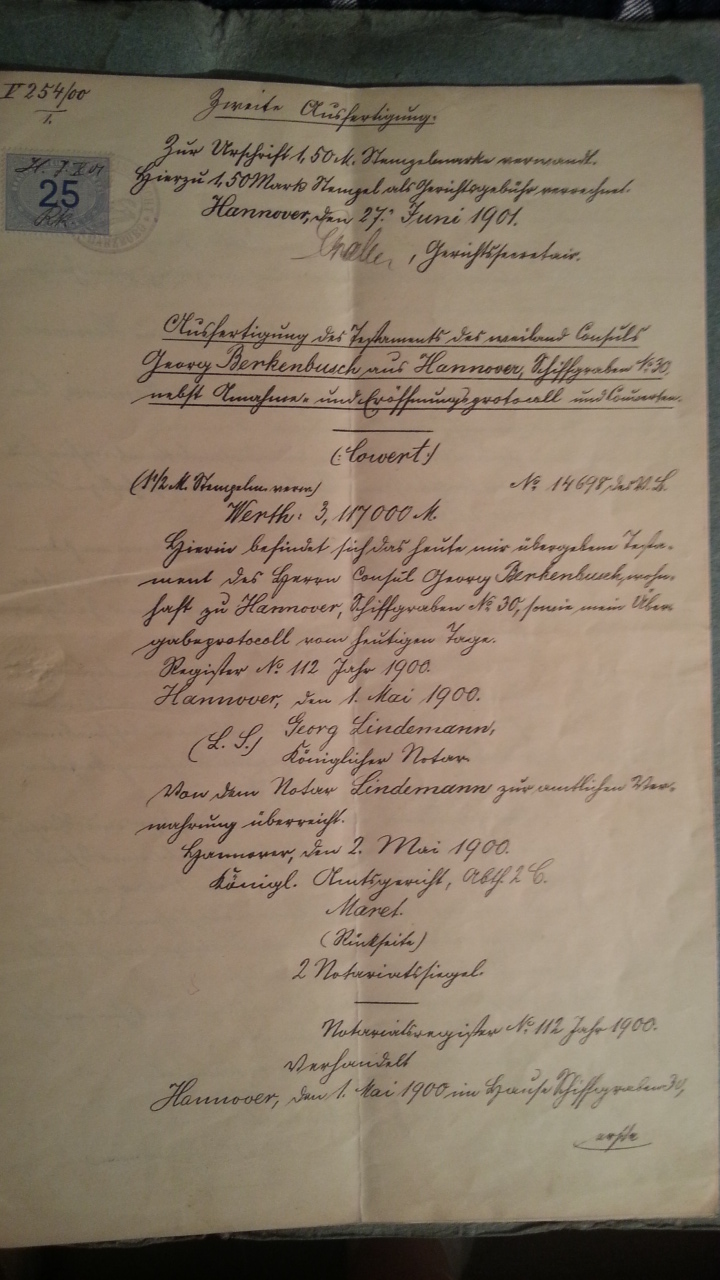 V 254/00
1.
Zweite Ausfertigung.
25
Zur Urschrift 1,50 M. Stempelmarke verwandt.
Hierzu 1,50 Mark Stempel als Gerichtsgebühr verrechnet.
Hannover, den 27. Juni 1901.
, Gerichtssecretair.
Ausfertigung des Testaments des weiland Consuls
Georg Berkenbusch aus Hannover, Schiffgraben No 30,
nebst Annahme- und Eröffnungsprotocoll und Couverten.
(:Covert:)
(1 1/2 M. Stempelm. verw.)
No 14698 des V. B.
Werth: 3,117000 M.
Hierin befindet sich das heute mir übergebene Testa-
ment des Herrn Consul Georg Berkenbusch, wohn-
haft zu Hannover, Schiffgraben No 30, sowie mein Über-
gabeprotocoll vom heutigen Tage.
Register No 112 Jahr 1900.
Hannover, den 1. Mai 1900.
(L. S.) Georg Lindemann,
Königlicher Notar
Von dem Notar Lindemann zur amtlichen Ver-
wahrung überreicht.
Hannover, den 2. Mai 1900.
Königl. Amtsgericht, Abth. 2 C.
Maret.
(Rückseite)
2 Notariatssiegel.
Notariatsregister No 112 Jahr 1900.
Verhandelt
Hannover, den 1. Mai 1900 im Hause Schiffgraben 30,
erste